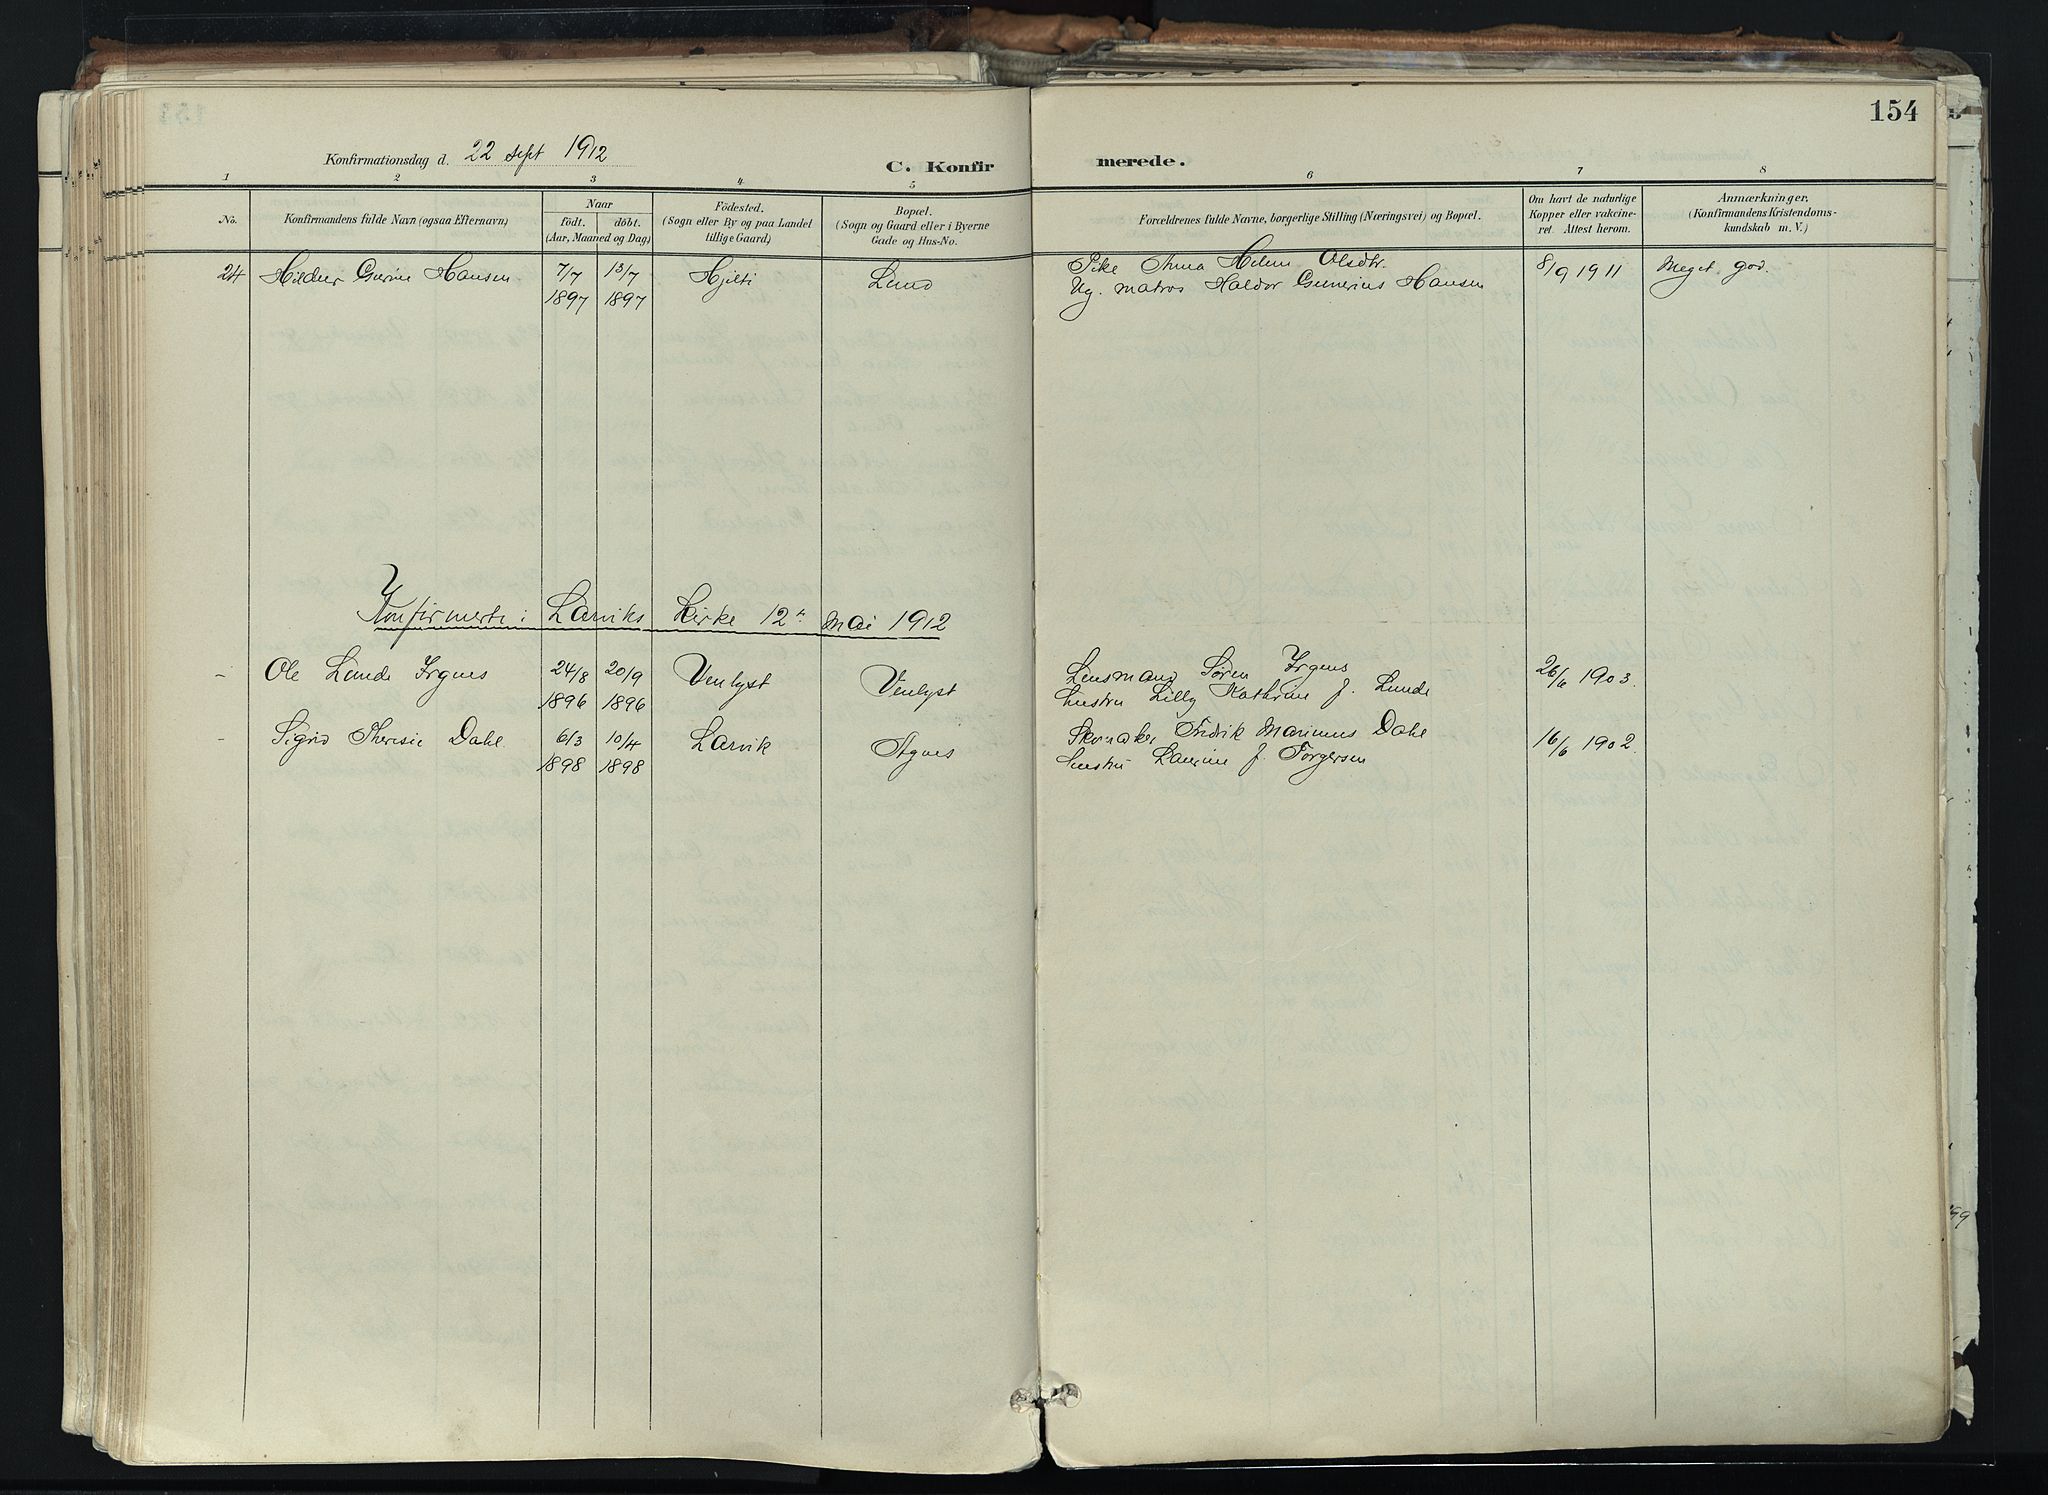 154
Konfirmationsdag d. 22 sept 1912
C. Konfirmerede.
1 2 3 4 5 6 7 8
No.
Konfirmandens fulde Navn (ogsaa Efternavn)
Naar
født. døbt.
(Aar, Maaned og Dag)
Födested.
(Sogn eller By og paa Landet
tillige Gaard)
Bopæl.
(Sogn og Gaard eller i Byerne
Gade og Hus-No.
Forældrenes fulde Navne, borgerlige Stilling (Næringsvei) og Bopæl.
Om havt de naturlige
Kopper eller vakcine-
ret. Attest herom.
Anmærkninger.
(Konfirmandens Kristendoms-
kundskab m. V.)
24 Hildur Gurine Hansen 7/7 13/7 Hjelti Lund Pike Anna Helene Olsdtr. 8/9 1911 Meget god.
1897 1897 Ug. matros Haldor Gunerius Hansen
Konfirmerte i Larviks Kirke 12te Mai 1912
- Ole Lunde Irgens 24/8 20/9 Venlyst Venlyst Lensmand Søren Irgens 26/6 1903.
1896 1896 hustru Lilly Kathrine f. Lunde
- Sigrid Theresie Dahl 6/3 10/4 Larvik Agnes Skomaker Fredrik Marinius Dahl 16/6 1902.
1898 1898 hustru Laurine f. Torgersen